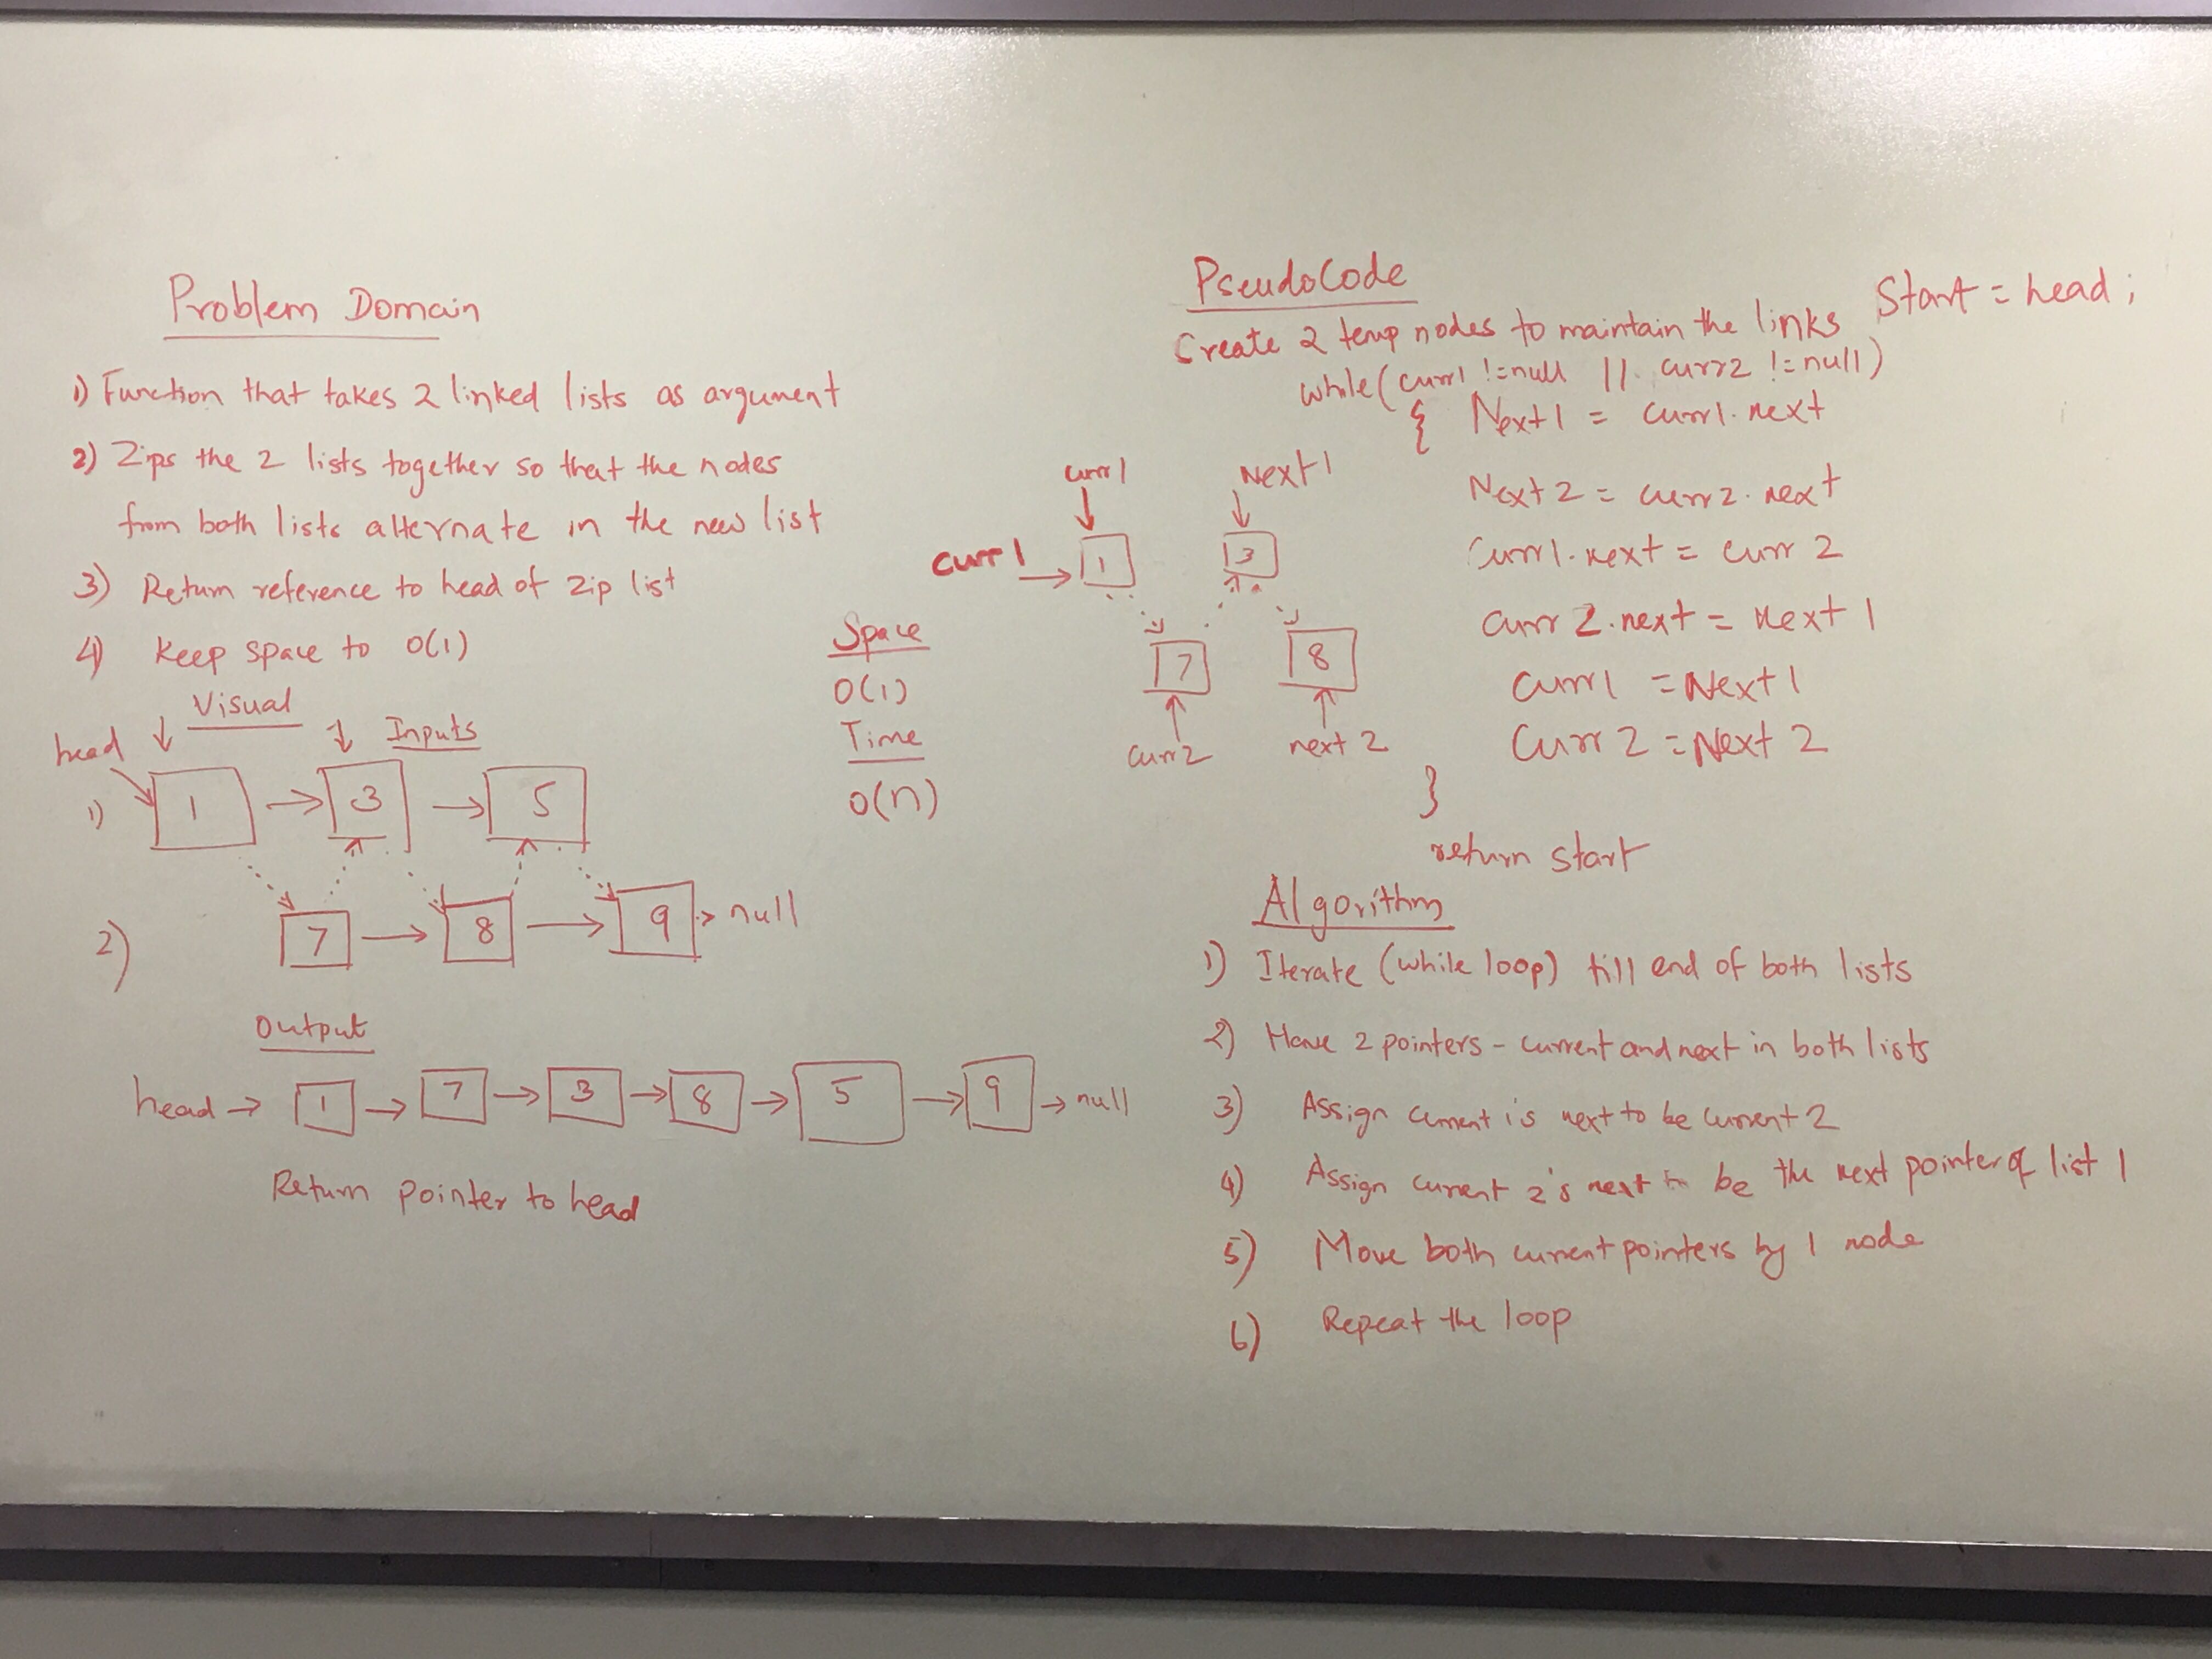 Problem Domain
1) Function that takes 2 linked lists as argument
2) Zips the 2 lists together so that the nodes
from both lists alternate in the new list
3) Return reference to head of zip list
4) Keep space to O(1)
Visual
head
Inputs
1) 1 3 5
2) 7 8 9 null
Output
head 1 7 3 8 5 9 null
Return pointer to head
Space
O(1)
Time
O(n)
PseudoCode
Start = head;
Create 2 temp nodes to maintain the links
while(curr1 != null || curr2 != null)
{ Next1 = curr1.next
Next2 = curr2.next
Curr1.next = curr 2
curr 2.next = Next 1
Curr1 = Next1
Curr 2 = Next 2
}
return start
curr1 Next1
curr1 1 3
7 8
curr2 next 2
Algorithm
1) Iterate (while loop) till end of both lists
2) Have 2 pointers - current and next in both lists
3) Assign current 1's next to be current 2
4) Assign current 2's next to be the next pointer of list 1
5) Move both current pointers by 1 node
6) Repeat the loop